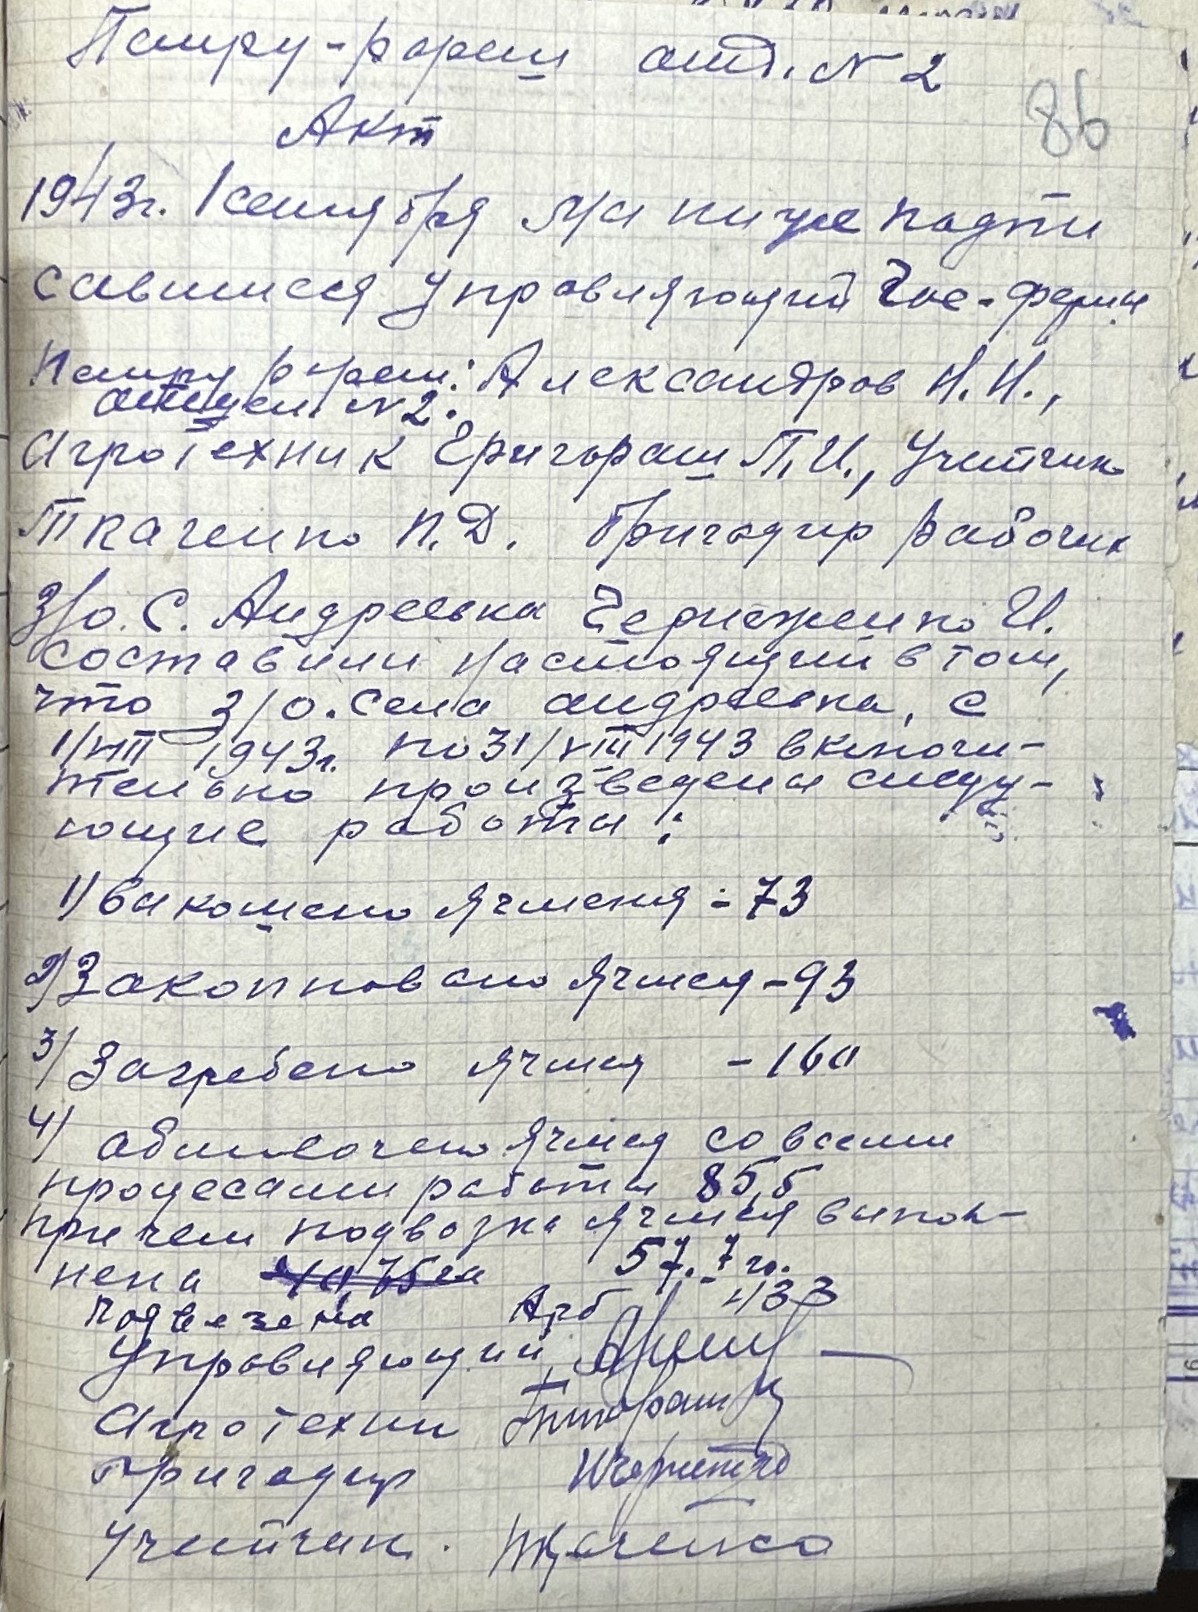 отд. N 2
86
Акт
1943г. 1 сентября мы ниже подпи
савшиеся Управляющий Гос-фермы
Александров Н.Н.,
отдел. N 2.
Агротехник Григораш П.И., Учетчик
Ткаченко П.Д. бригадир рабочих
З/О. С. Андреевка И.
составили настоящий в том,
что З/О. села андреевка, с
1/VIII 1943г. по 31/VIII 1943 включи-
тельно произведены следу-
ющие работы:
1) Выкошено ячменя - 73
2) Закопновано ячменя - 93
3) Загребено ячмня -
4) обмолочено ячмня со всеми
процесами работы 85,5
причем подвозка ячменя выпол-
нена 57.7 га.
подвезена Арб 433
Управляющий
Агротехник Григораш
Бригадир
Учетчик. Ткаченко